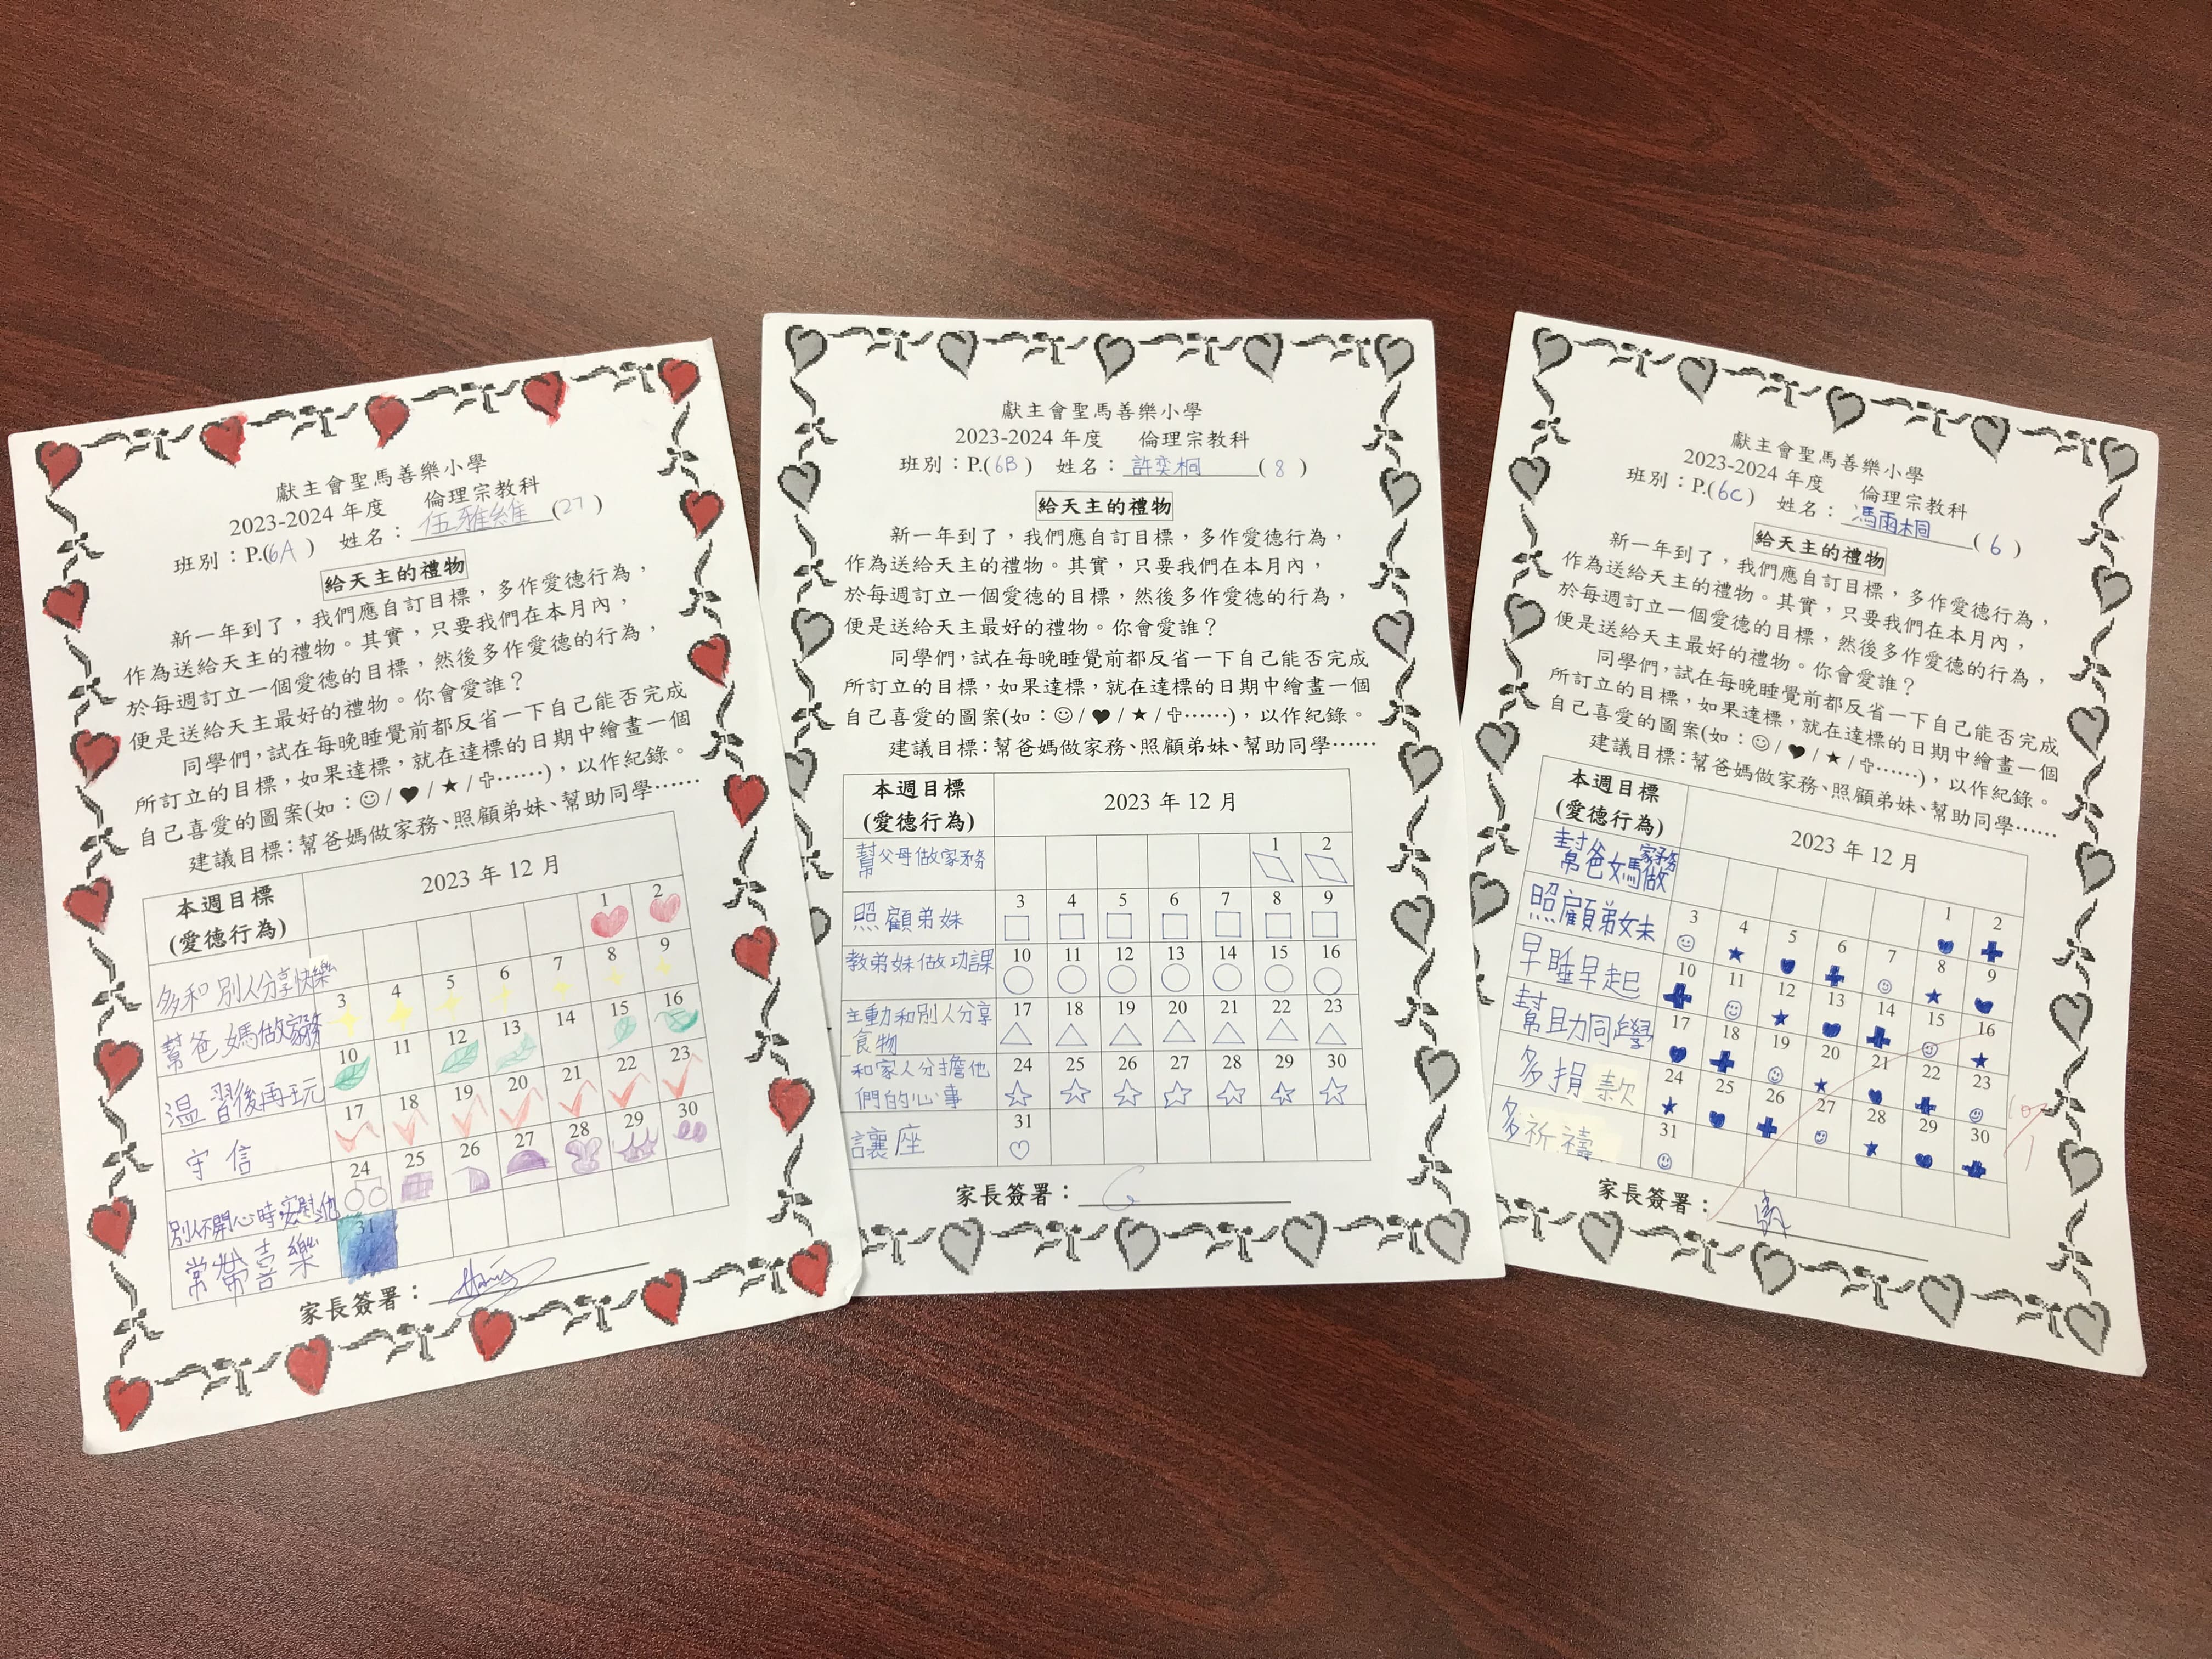 獻主會聖馬善樂小學
2023-2024 年度 倫理宗教科
班別：P.(6A) 姓名：伍雅維(27)
給天主的禮物
新一年到了，我們應自訂目標，多作愛德行為，
作為送給天主的禮物。其實，只要我們在本月內，
於每週訂立一個愛德的目標，然後多作愛德的行為，
便是送給天主最好的禮物。你會愛誰？
同學們，試在每晚睡覺前都反省一下自己能否完成
所訂立的目標，如果達標，就在達標的日期中繪畫一個
自己喜愛的圖案(如：☺/♥/★/✞……)，以作紀錄。
建議目標：幫爸媽做家務、照顧弟妹、幫助同學……
本週目標
(愛德行為)
2023 年 12 月
多和別人分享快樂 1 2
幫爸媽做家務 3 4 5 6 7 8 9
温習後再玩 10 11 12 13 14 15 16
守信 17 18 19 20 21 22 23
別人不開心時安慰他 24 25 26 27 28 29 30
常常喜樂 31
家長簽署：
獻主會聖馬善樂小學
2023-2024 年度 倫理宗教科
班別：P.(6B) 姓名：許奕桐(8)
給天主的禮物
新一年到了，我們應自訂目標，多作愛德行為，
作為送給天主的禮物。其實，只要我們在本月內，
於每週訂立一個愛德的目標，然後多作愛德的行為，
便是送給天主最好的禮物。你會愛誰？
同學們，試在每晚睡覺前都反省一下自己能否完成
所訂立的目標，如果達標，就在達標的日期中繪畫一個
自己喜愛的圖案(如：☺/♥/★/✞……)，以作紀錄。
建議目標：幫爸媽做家務、照顧弟妹、幫助同學……
本週目標
(愛德行為)
2023 年 12 月
幫父母做家務 1 2
照顧弟妹 3 4 5 6 7 8 9
教弟妹做功課 10 11 12 13 14 15 16
主動和別人分享
食物 17 18 19 20 21 22 23
和家人分擔他
們的心事 24 25 26 27 28 29 30
讓座 31
家長簽署：
獻主會聖馬善樂小學
2023-2024 年度 倫理宗教科
班別：P.(6C) 姓名：馮雨桐(6)
給天主的禮物
新一年到了，我們應自訂目標，多作愛德行為，
作為送給天主的禮物。其實，只要我們在本月內，
於每週訂立一個愛德的目標，然後多作愛德的行為，
便是送給天主最好的禮物。你會愛誰？
同學們，試在每晚睡覺前都反省一下自己能否完成
所訂立的目標，如果達標，就在達標的日期中繪畫一個
自己喜愛的圖案(如：☺/♥/★/✞……)，以作紀錄。
建議目標：幫爸媽做家務、照顧弟妹、幫助同學……
本週目標
(愛德行為)
2023 年 12 月
幫爸媽做家務 1 2
照顧弟妹 3 4 5 6 7 8 9
早睡早起 10 11 12 13 14 15 16
幫助同學 17 18 19 20 21 22 23
多捐款 24 25 26 27 28 29 30
多祈禱 31
家長簽署：